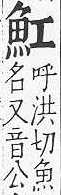 魟
呼洪切魚
名又音公